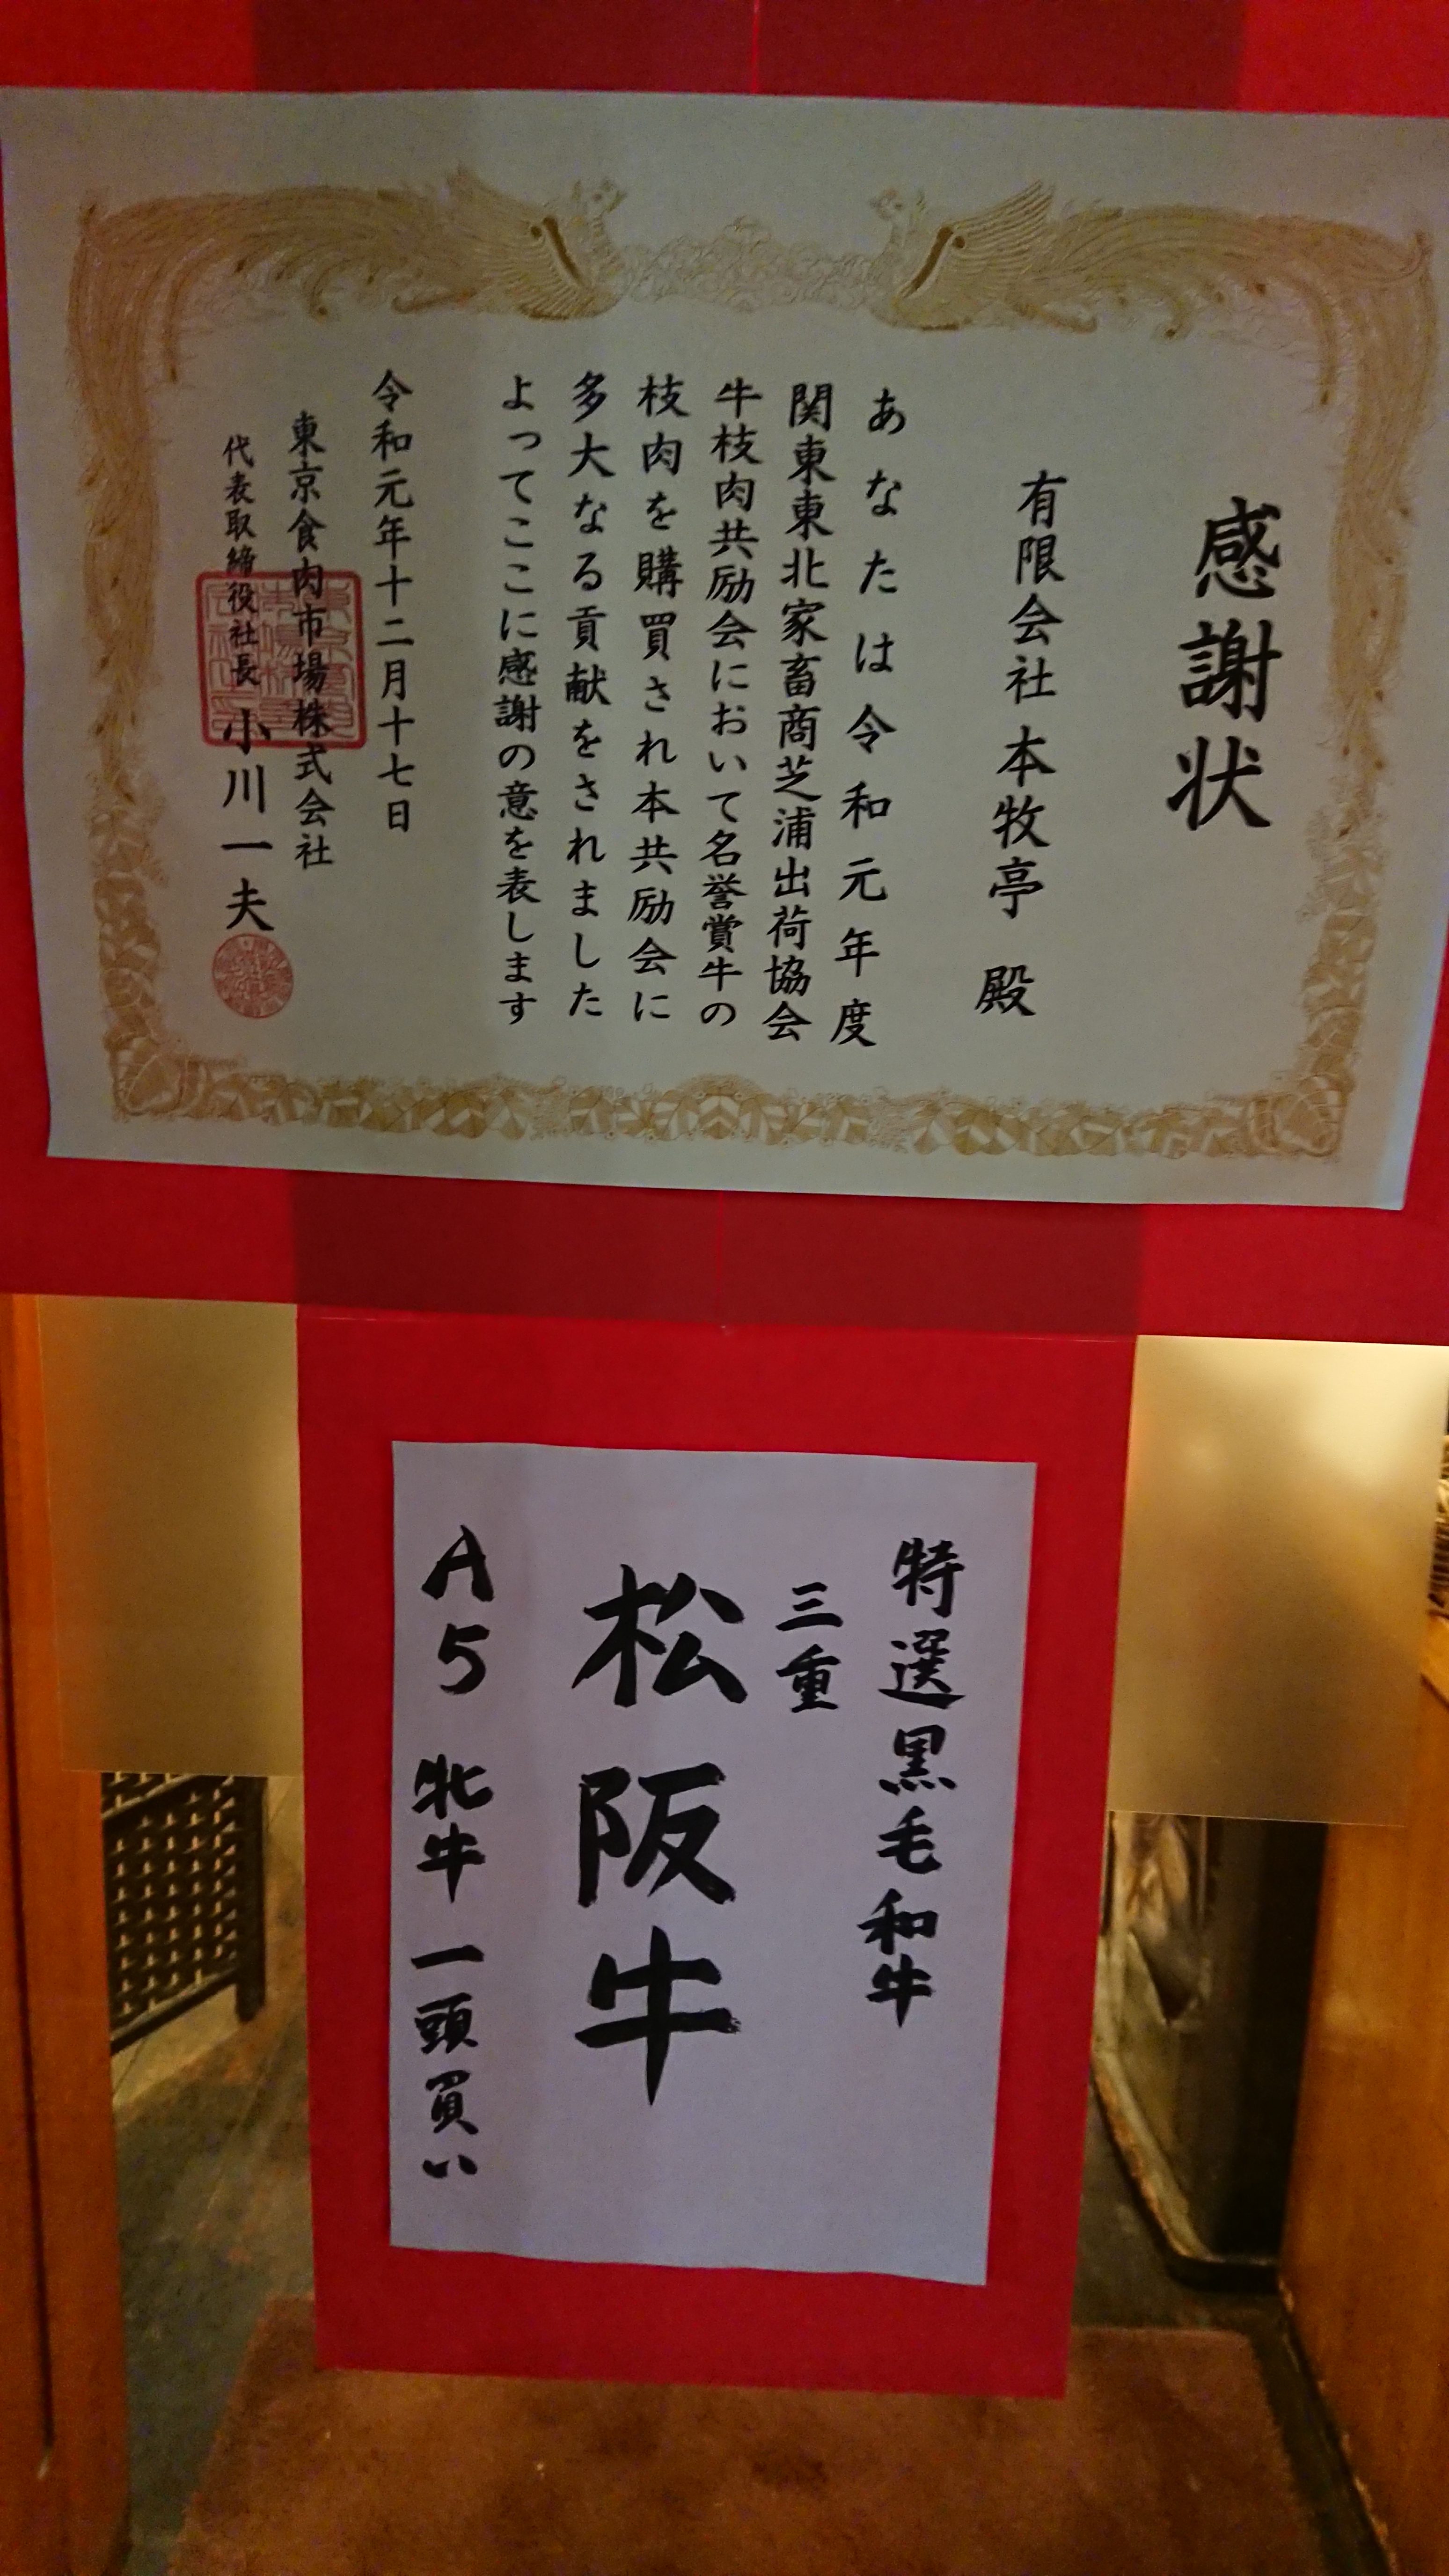 感謝状
有限会社 本牧亭 殿
あなたは令和元年度
関東東北家畜商芝浦出荷協会
牛枝肉共励会において名誉賞牛の
枝肉を購買され本共励会に
多大なる貢献をされました
よってここに感謝の意を表します
令和元年十二月十七日
東京食肉市場株式会社
代表取締役社長 小川一夫
特選黒毛和牛
三重
松阪牛
A5 牝牛 一頭買い